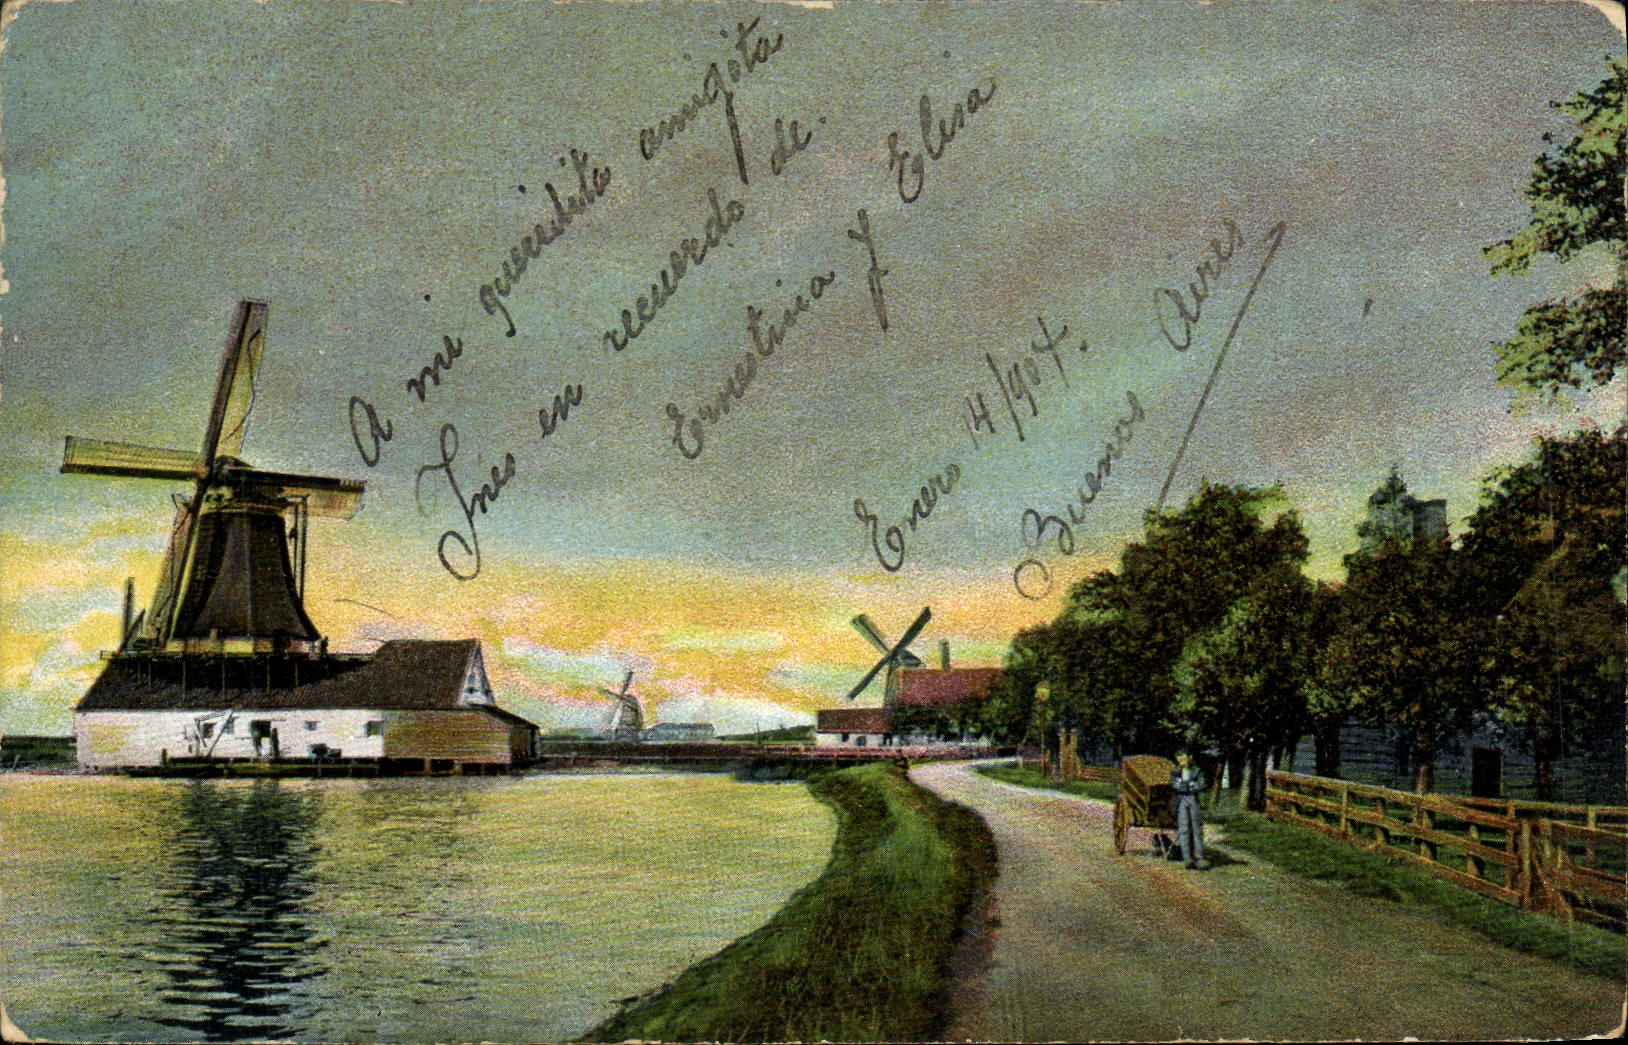 A mi queridita amigita
Inés en recuerdo de.
Ernestina y Elisa
Enero 14/904.
Buenos Aires